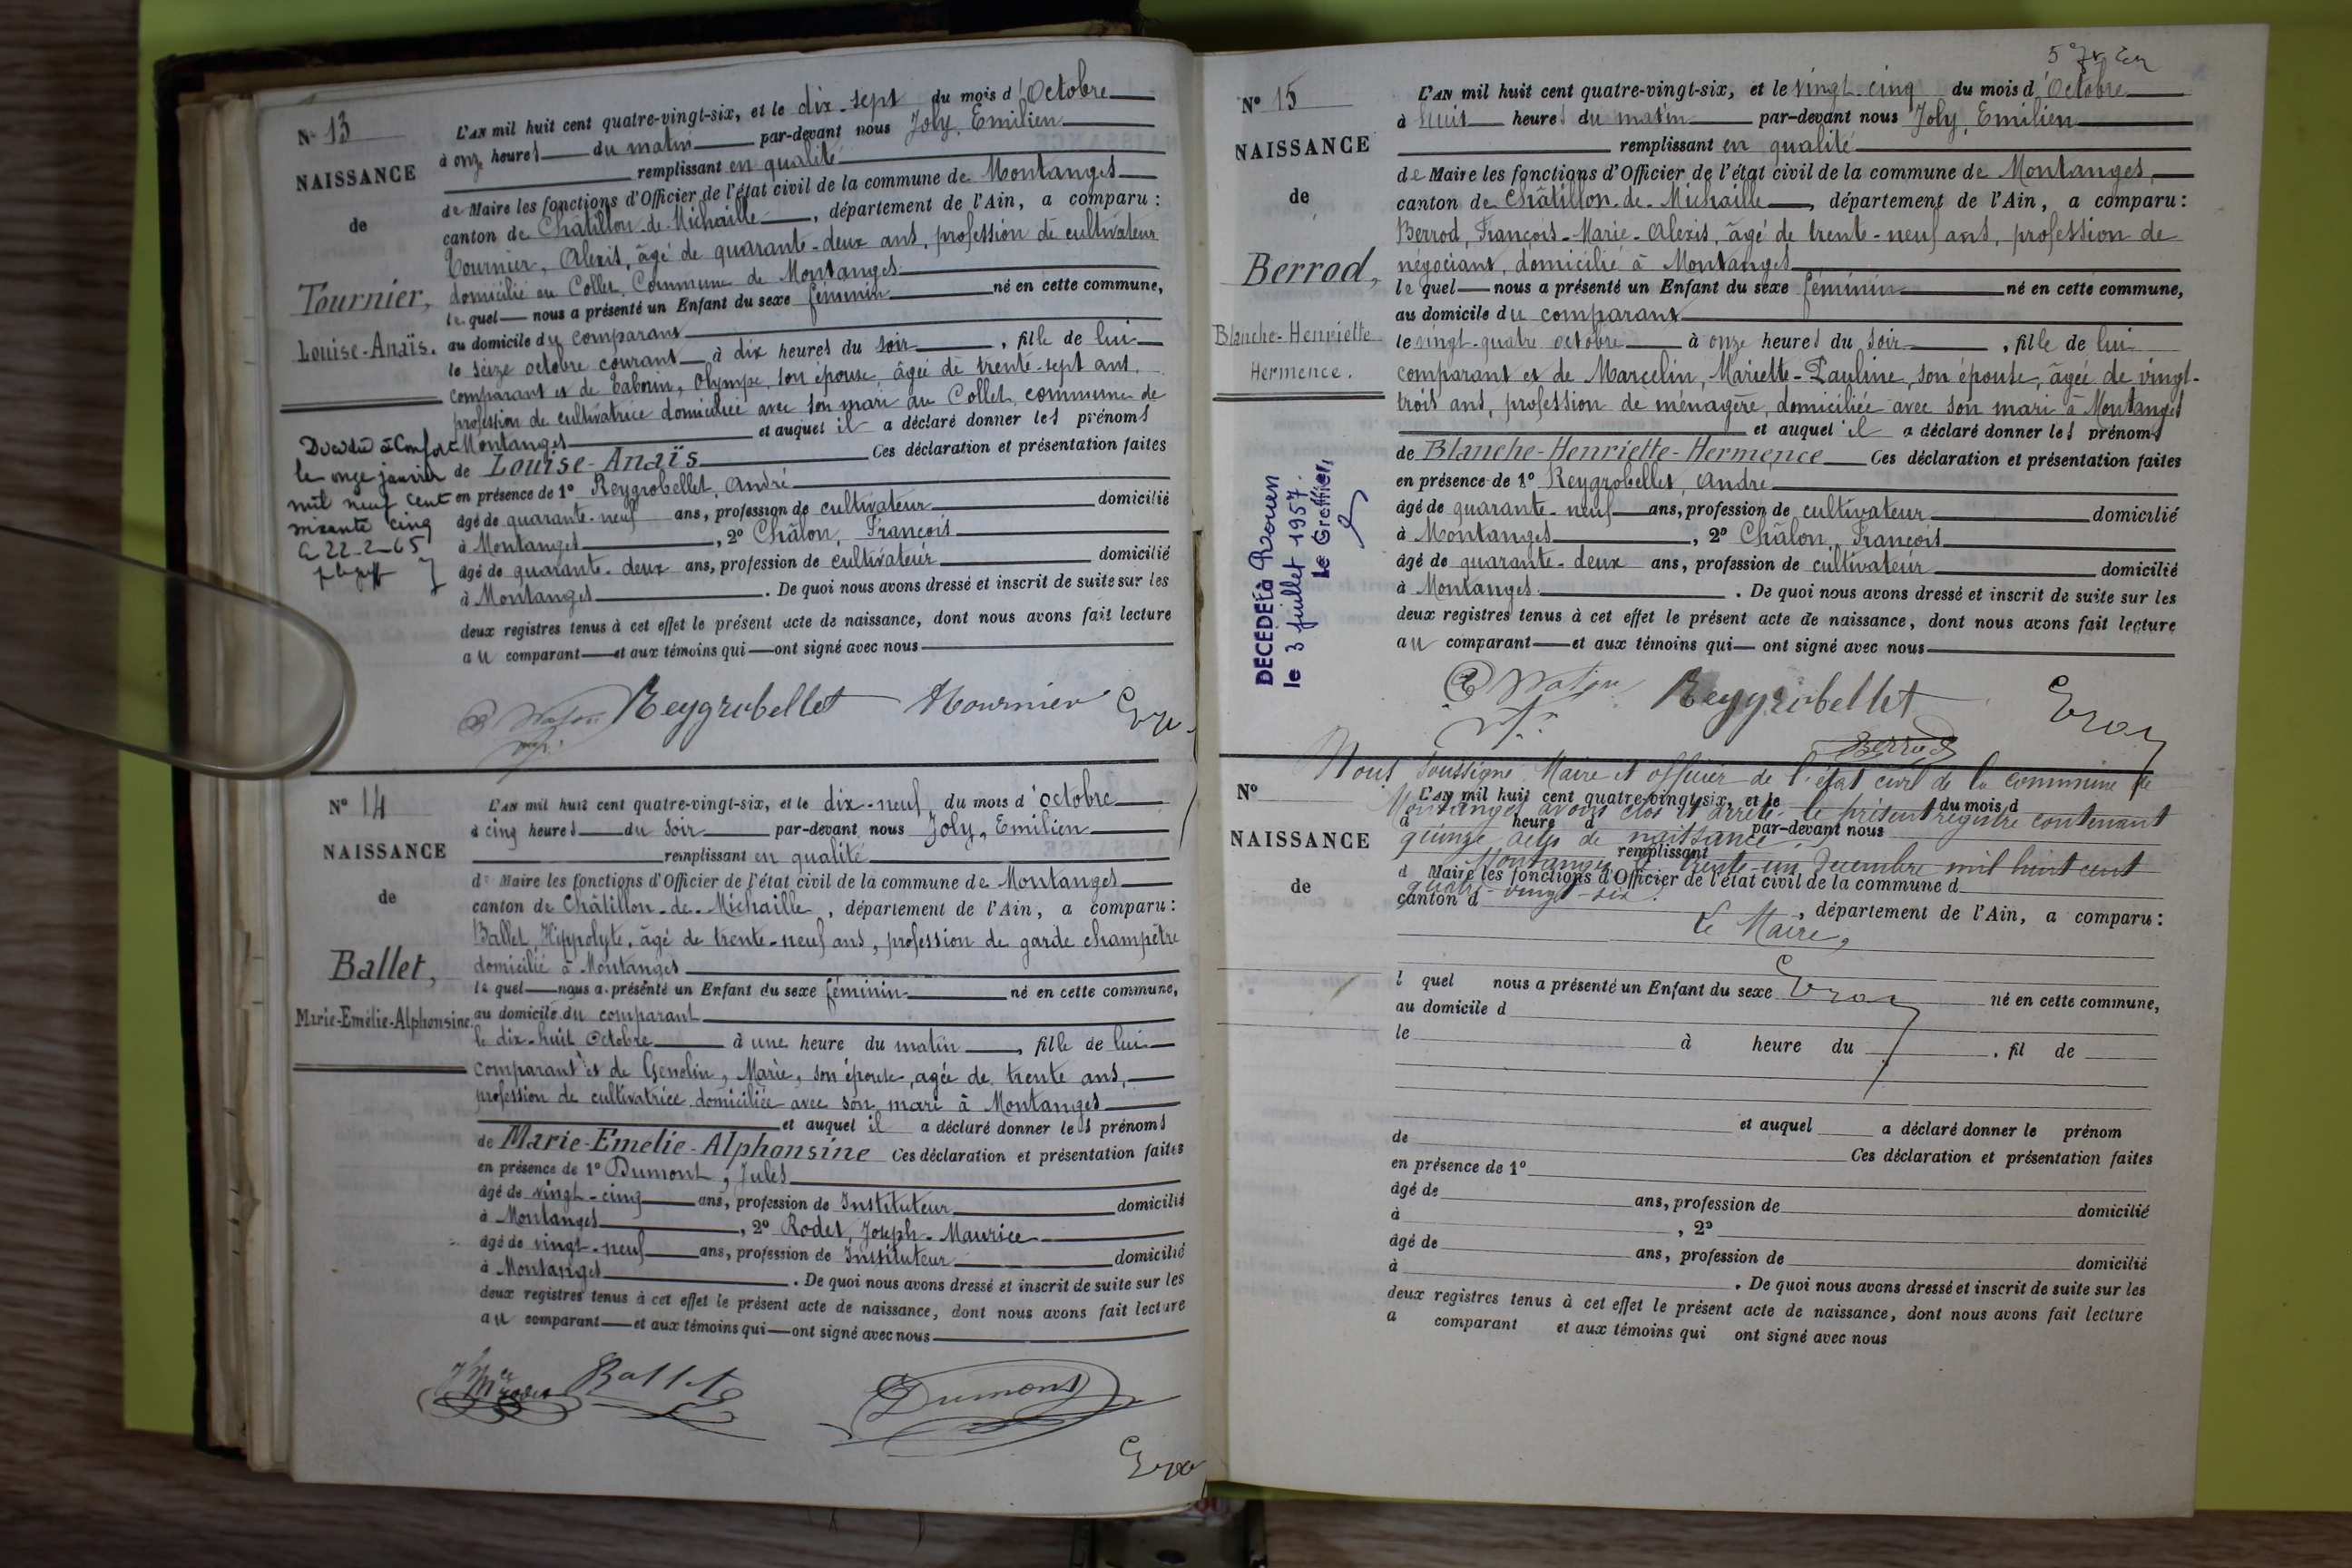 N° 13
NAISSANCE
de
Tournier,
Louise-Anaïs.
L'AN mil huit cent quatre-vingt-six, et le dix-sept du mois d'Octobre
à onze heures du matin par-devant nous Joly, Emilien
remplissant en qualité
de Maire les fonctions d'Officier de l'état civil de la commune de Montanges
canton de Châtillon-de-Michaille, département de l'Ain, a comparu :
Tournier, Alexis, âgé de quarante-deux ans, profession de cultivateur
domicilié au Collet, Commune de Montanges
lequel nous a présenté un Enfant du sexe féminin né en cette commune,
au domicile du comparant
le seize octobre courant à dix heures du soir, fille de lui
comparant et de Olympe, son épouse, âgée de trente-sept ans,
profession de cultivatrice domiciliée avec son mari au Collet, commune de
Montanges et auquel il a déclaré donner les prénoms
de Louise-Anaïs Ces déclaration et présentation faites
en présence de 1° Reygrobellet, André
âgé de quarante-neuf ans, profession de cultivateur domicilié
à Montanges, 2° Châlon, François
âgé de quarante-deux ans, profession de cultivateur domicilié
à Montanges. De quoi nous avons dressé et inscrit de suite sur les
deux registres tenus à cet effet le présent acte de naissance, dont nous avons fait lecture
au comparant et aux témoins qui ont signé avec nous
Décédée à Confort
le onze janvier
mil neuf cent
soixante cinq
22-2-65
Reygrobellet Tournier
N° 14
NAISSANCE
de
Ballet,
Marie-Emélie-Alphonsine.
L'AN mil huit cent quatre-vingt-six, et le dix-neuf du mois d'octobre
à cinq heures du soir par-devant nous Joly, Emilien
remplissant en qualité
de Maire les fonctions d'Officier de l'état civil de la commune de Montanges
canton de Châtillon-de-Michaille, département de l'Ain, a comparu :
Ballet, Hippolyte, âgé de trente-neuf ans, profession de garde champêtre
domicilié à Montanges
lequel nous a présenté un Enfant du sexe féminin né en cette commune,
au domicile du comparant
le dix-huit Octobre à une heure du matin, fille de lui
comparant et de Genolin, Marie, son épouse, agée de trente ans,
profession de cultivatrice domiciliée avec son mari à Montanges
et auquel il a déclaré donner les prénoms
de Marie-Emelie-Alphonsine Ces déclaration et présentation faites
en présence de 1° Dumont, Jules
âgé de vingt-cinq ans, profession de Instituteur domicilié
à Montanges, 2° Rodet, Joseph-Maurice
âgé de vingt-neuf ans, profession de Instituteur domicilié
à Montanges. De quoi nous avons dressé et inscrit de suite sur les
deux registres tenus à cet effet le présent acte de naissance, dont nous avons fait lecture
au comparant et aux témoins qui ont signé avec nous
Ballet Dumont
N° 15
NAISSANCE
de
Berrod,
Blanche-Henriette
Hermence.
L'AN mil huit cent quatre-vingt-six, et le vingt-cinq du mois d'Octobre
à huit heures du matin par-devant nous Joly, Emilien
remplissant en qualité
de Maire les fonctions d'Officier de l'état civil de la commune de Montanges,
canton de Châtillon-de-Michaille, département de l'Ain, a comparu :
Berrod, François-Marie-Alexis, âgé de trente-neuf ans, profession de
négociant, domicilié à Montanges
lequel nous a présenté un Enfant du sexe féminin né en cette commune,
au domicile du comparant
le vingt-quatre octobre à onze heures du soir, fille de lui
comparant et de Marcelin, Mariette-Pauline, son épouse, âgée de vingt-
trois ans, profession de ménagère, domiciliée avec son mari à Montanges
et auquel il a déclaré donner les prénoms
de Blanche-Henriette-Hermence Ces déclaration et présentation faites
en présence de 1° Reygrobellet, André
âgé de quarante-neuf ans, profession de cultivateur domicilié
à Montanges, 2° Châlon, François
âgé de quarante-deux ans, profession de cultivateur domicilié
à Montanges. De quoi nous avons dressé et inscrit de suite sur les
deux registres tenus à cet effet le présent acte de naissance, dont nous avons fait lecture
au comparant et aux témoins qui ont signé avec nous
DÉCÉDÉ à Rouen
le 3 juillet 1957.
Le Greffier,
Reygrobellet
Berrod
Nous soussigné Maire et officier de l'état civil de la commune de
Montanges avons clos et arrêté le présent registre contenant
quinze actes de naissance.
Montanges le trente-un Décembre mil huit cent
quatre-vingt-six.
Le Maire,
N°
NAISSANCE
de
L'AN mil huit cent quatre-vingt-six, et le du mois d
à heure d par-devant nous
remplissant
d Maire les fonctions d'Officier de l'état civil de la commune d
canton d , département de l'Ain, a comparu :
l quel nous a présenté un Enfant du sexe né en cette commune,
au domicile d
le à heure du , fil de
et auquel a déclaré donner le prénom
de Ces déclaration et présentation faites
en présence de 1°
âgé de ans, profession de domicilié
à , 2°
âgé de ans, profession de domicilié
à . De quoi nous avons dressé et inscrit de suite sur les
deux registres tenus à cet effet le présent acte de naissance, dont nous avons fait lecture
a comparant et aux témoins qui ont signé avec nous